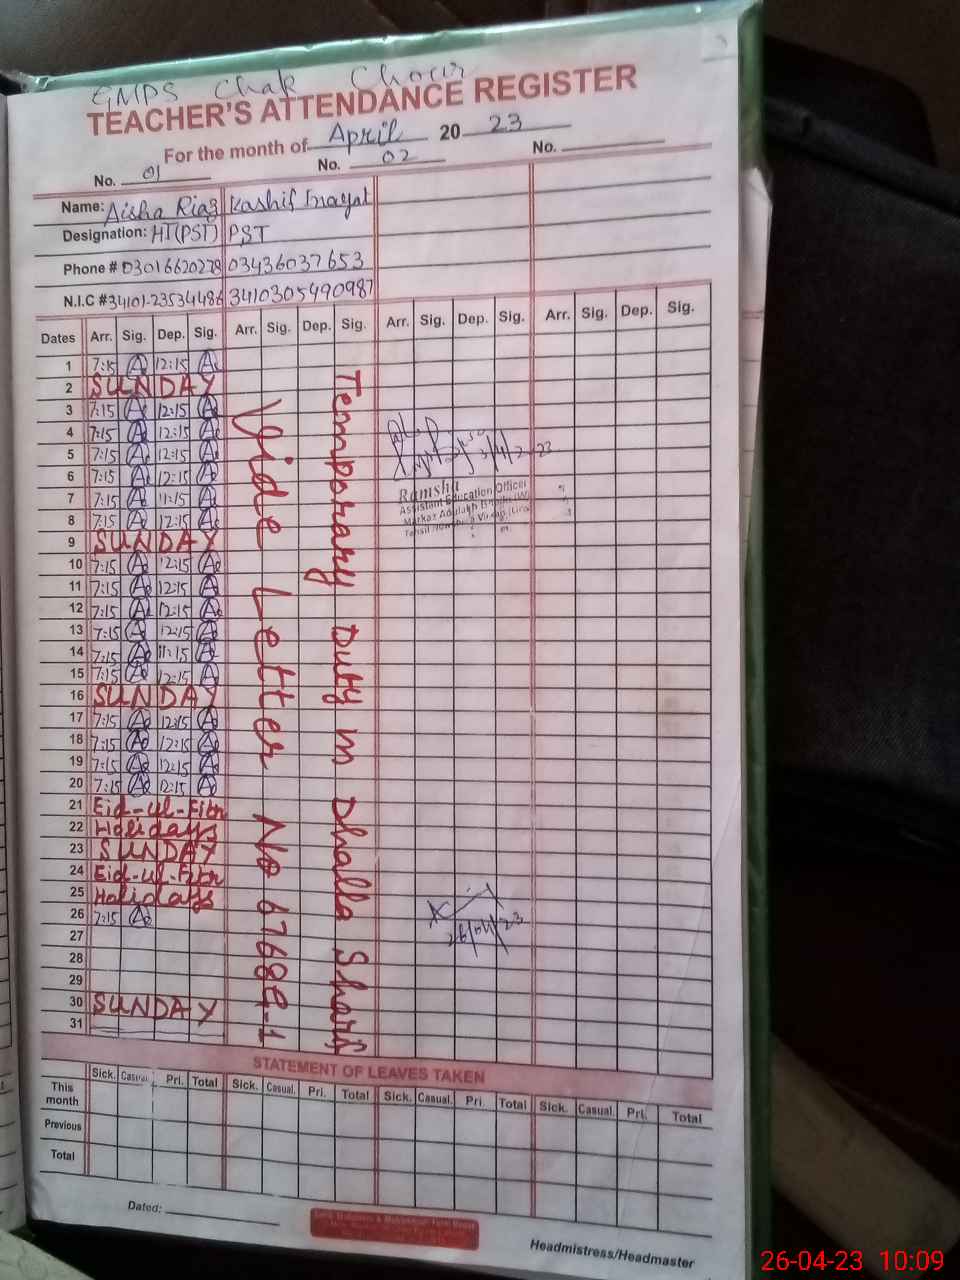 GMPS Chak Chour
TEACHER'S ATTENDANCE REGISTER
For the month of April 20 23
No. 01 No. 02 No.
Name: Aisha Riaz Kashif Inayat
Designation: HT(PST) PST
Phone # 03016620228 03436037653
N.I.C # 34101-23534486 3410305490987
Dates Arr. Sig. Dep. Sig. Arr. Sig. Dep. Sig. Arr. Sig. Dep. Sig. Arr. Sig. Dep. Sig.
1 7:15 12:15
2 SUNDAY
3 7:15 12:15
4 7:15 12:15
5 7:15 12:15
6 7:15 12:15
7 7:15 11:15
8 7:15 12:15
9 SUNDAY
10 7:15 12:15
11 7:15 12:15
12 7:15 12:15
13 7:15 12:15
14 7:15 11:15
15 7:15 12:15
16 SUNDAY
17 7:15 12:15
18 7:15 12:15
19 7:15 12:15
20 7:15 12:15
21 Eid-ul-Fitr
22 Holidays
23 SUNDAY
24 Eid-ul-Fitr
25 Holidays
26 7:15
27
28
29
30 SUNDAY
31
Temporary Duty in Dhalla Sharif
Vide Letter No
Ramsha
Assistant Education Officer
Markaz
26/04/23
STATEMENT OF LEAVES TAKEN
Sick. Casual. Pri. Total Sick. Casual. Pri. Total Sick. Casual. Pri. Total Sick. Casual. Pri. Total
This month
Previous
Total
Dated:
Headmistress/Headmaster
26-04-23 10:09